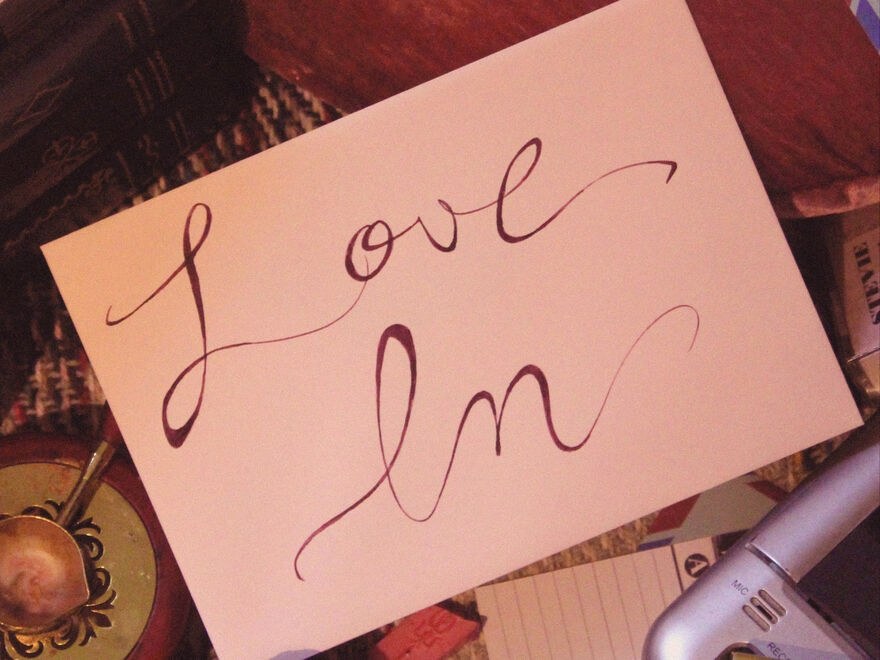 Love
In
STEVIE
A
MIC
REC